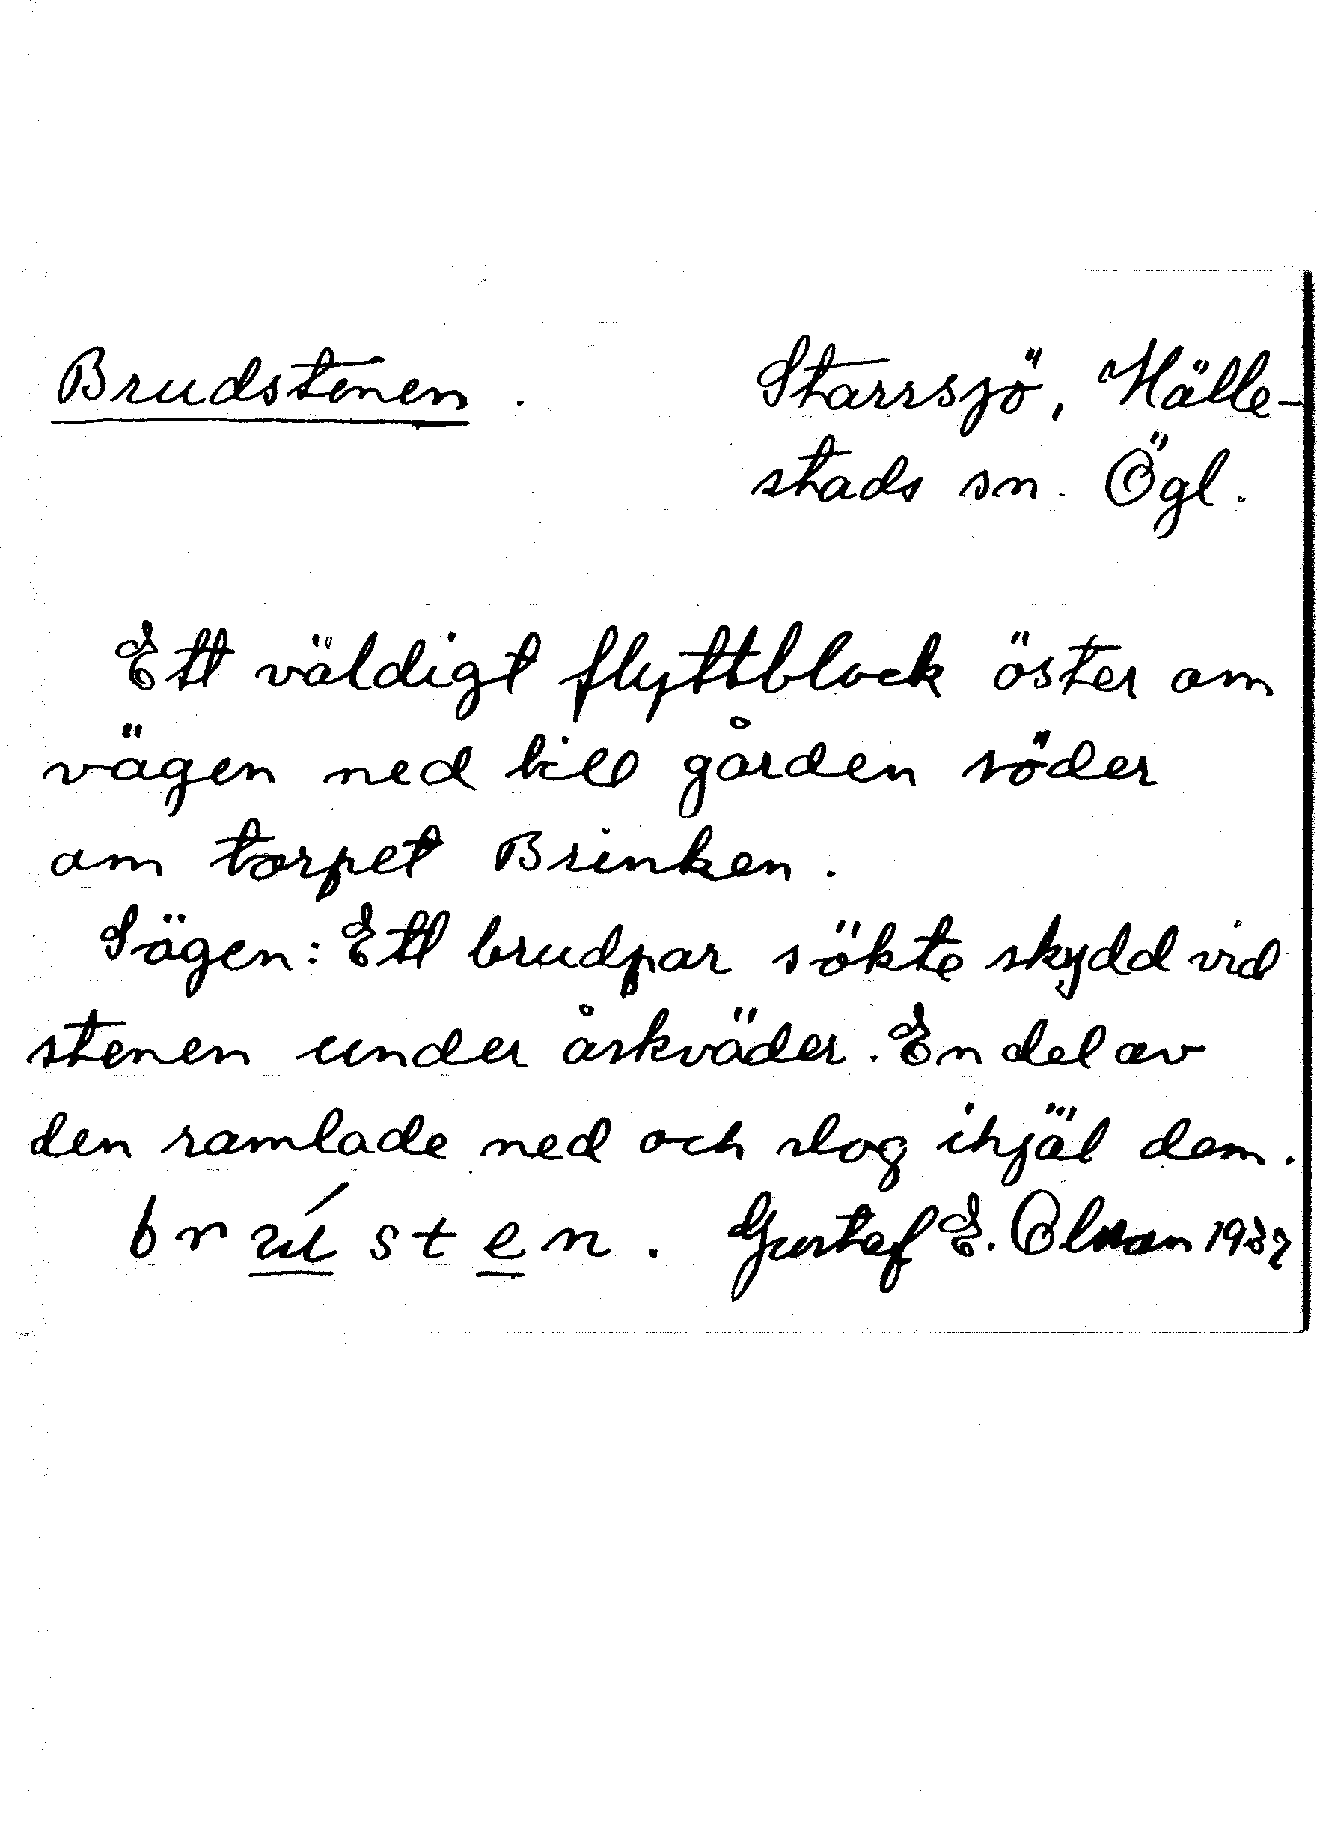 Brudstenen. Starrsjö, Hälle-
stads sn. Ögl.
Ett väldigt flyttblock öster om
vägen ned till gården söder
om torpet Brinken.
Sägen: Ett brudpar sökte skydd vid
stenen under åskväder. En del av
den ramlade ned och slog ihjäl dem.
brústen. Gustaf E. Olsson 1937